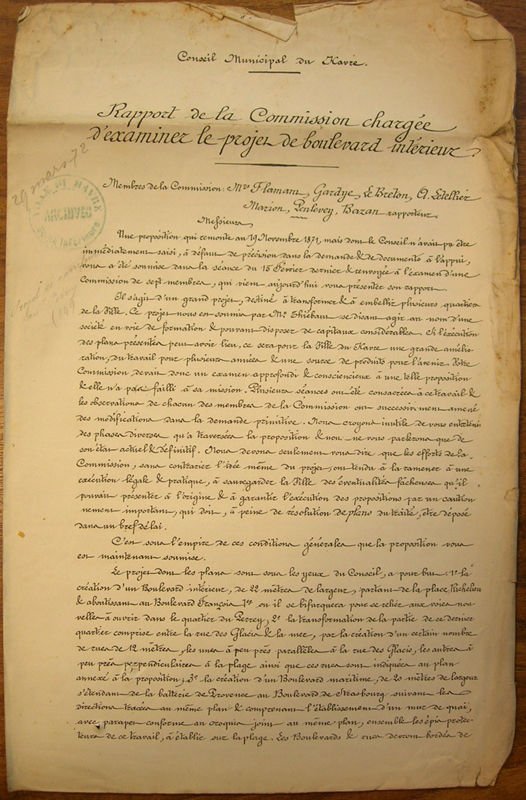 Conseil Municipal du Havre.
Rapport de la Commission chargée
d'examiner le projet de boulevard intérieur.
29 mars 72
VILLE DU HAVRE
ARCHIVES
Membres de la Commission: Mrs Flamant, Gardye, E. Breton, A. Letellier
Marion, Penlevey, Bazan rapporteur.
Messieurs,
Une proposition qui remonte au 19 Novembre 1871, mais dont le Conseil n'avait pu être
immédiatement saisi, à défaut de précision dans la demande & de documents à l'appui,
vous a été soumise dans la séance du 15 Février dernier & renvoyée à l'examen d'une
Commission de sept membres, qui vient aujourd'hui vous présenter son rapport.
Il s'agit d'un grand projet, destiné à transformer & à embellir plusieurs quartiers
de la Ville. Ce projet nous est soumis par Mr Thiébaut se disant agir au nom d'une
société en voie de formation & pouvant disposer de capitaux considérables. Si l'exécution
des plans présentés peut avoir lieu, ce sera pour la Ville du Havre une grande amélio-
ration, du travail pour plusieurs années & une source de produits pour l'avenir. Votre
Commission devait donc un examen approfondi & consciencieux à une telle proposition
& elle n'a pas failli à sa mission. Plusieurs séances ont été consacrées à ce travail &
les observations de chacun des membres de la Commission ont successivement amené
des modifications dans la demande primitive. Nous croyons inutile de vous entretenir
des phases diverses qu'a traversées la proposition & nous ne vous parlerons que de
son état actuel & définitif. Nous devons seulement vous dire que les efforts de la
Commission, sans contrarier l'idée même du projet, ont tendu à la ramener à une
exécution légale & pratique, à sauvegarder la Ville des éventualités fâcheuses qu'il
pouvait présenter à l'origine & à garantir l'exécution des propositions par un caution
nement important, qui doit, à peine de résolution de plano du traité, être déposé
dans un bref délai.
C'est sous l'empire de ces conditions générales que la proposition vous
est maintenant soumise.
Le projet dont les plans sont sous les yeux du Conseil, a pour but: 1° la
création d'un Boulevard intérieur, de 22 mètres de largeur, partant de la place Richelieu
& aboutissant au Boulevard François 1er où il se bifurquera pour se relier aux voies nou
velles à ouvrir dans le quartier du Perrey, 2° la transformation de la partie de ce dernier
quartier comprise entre la rue des Glacis & la mer, par la création d'un certain nombre
de rues de 12 mètres, les unes à peu près parallèles à la rue des Glacis, les autres à
peu près perpendiculaires à la plage ainsi que ces rues sont indiquées au plan
annexé à la proposition, 3° la création d'un Boulevard maritime, de 20 mètres de largeur
s'étendant de la batterie de Provence au Boulevard de Strasbourg suivant les
directions tracées au même plan & comprenant l'établissement d'un mur de quai,
avec parapet conforme au croquis joint au même plan, ensemble les épis protec-
teurs de ce travail, à établir sur la plage. Les Boulevards & rues devront bordés de